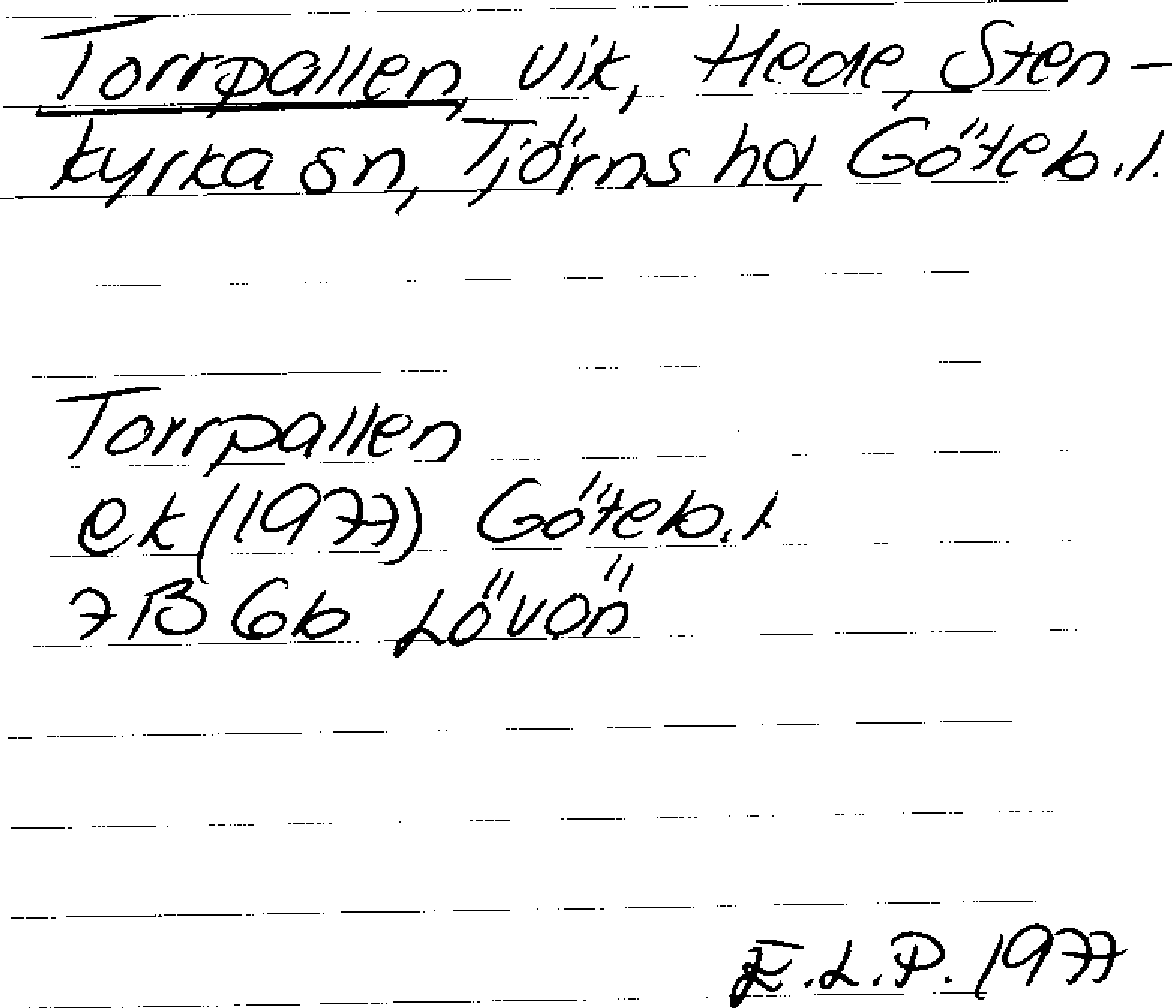 Torrpallen, vik, Hede, Sten-
kyrka sn, Tjörns hd, Göteb.l.
Torrpallen
ek (1977) Göteb.l
7B 6b Lövön
E.L.P. 1977